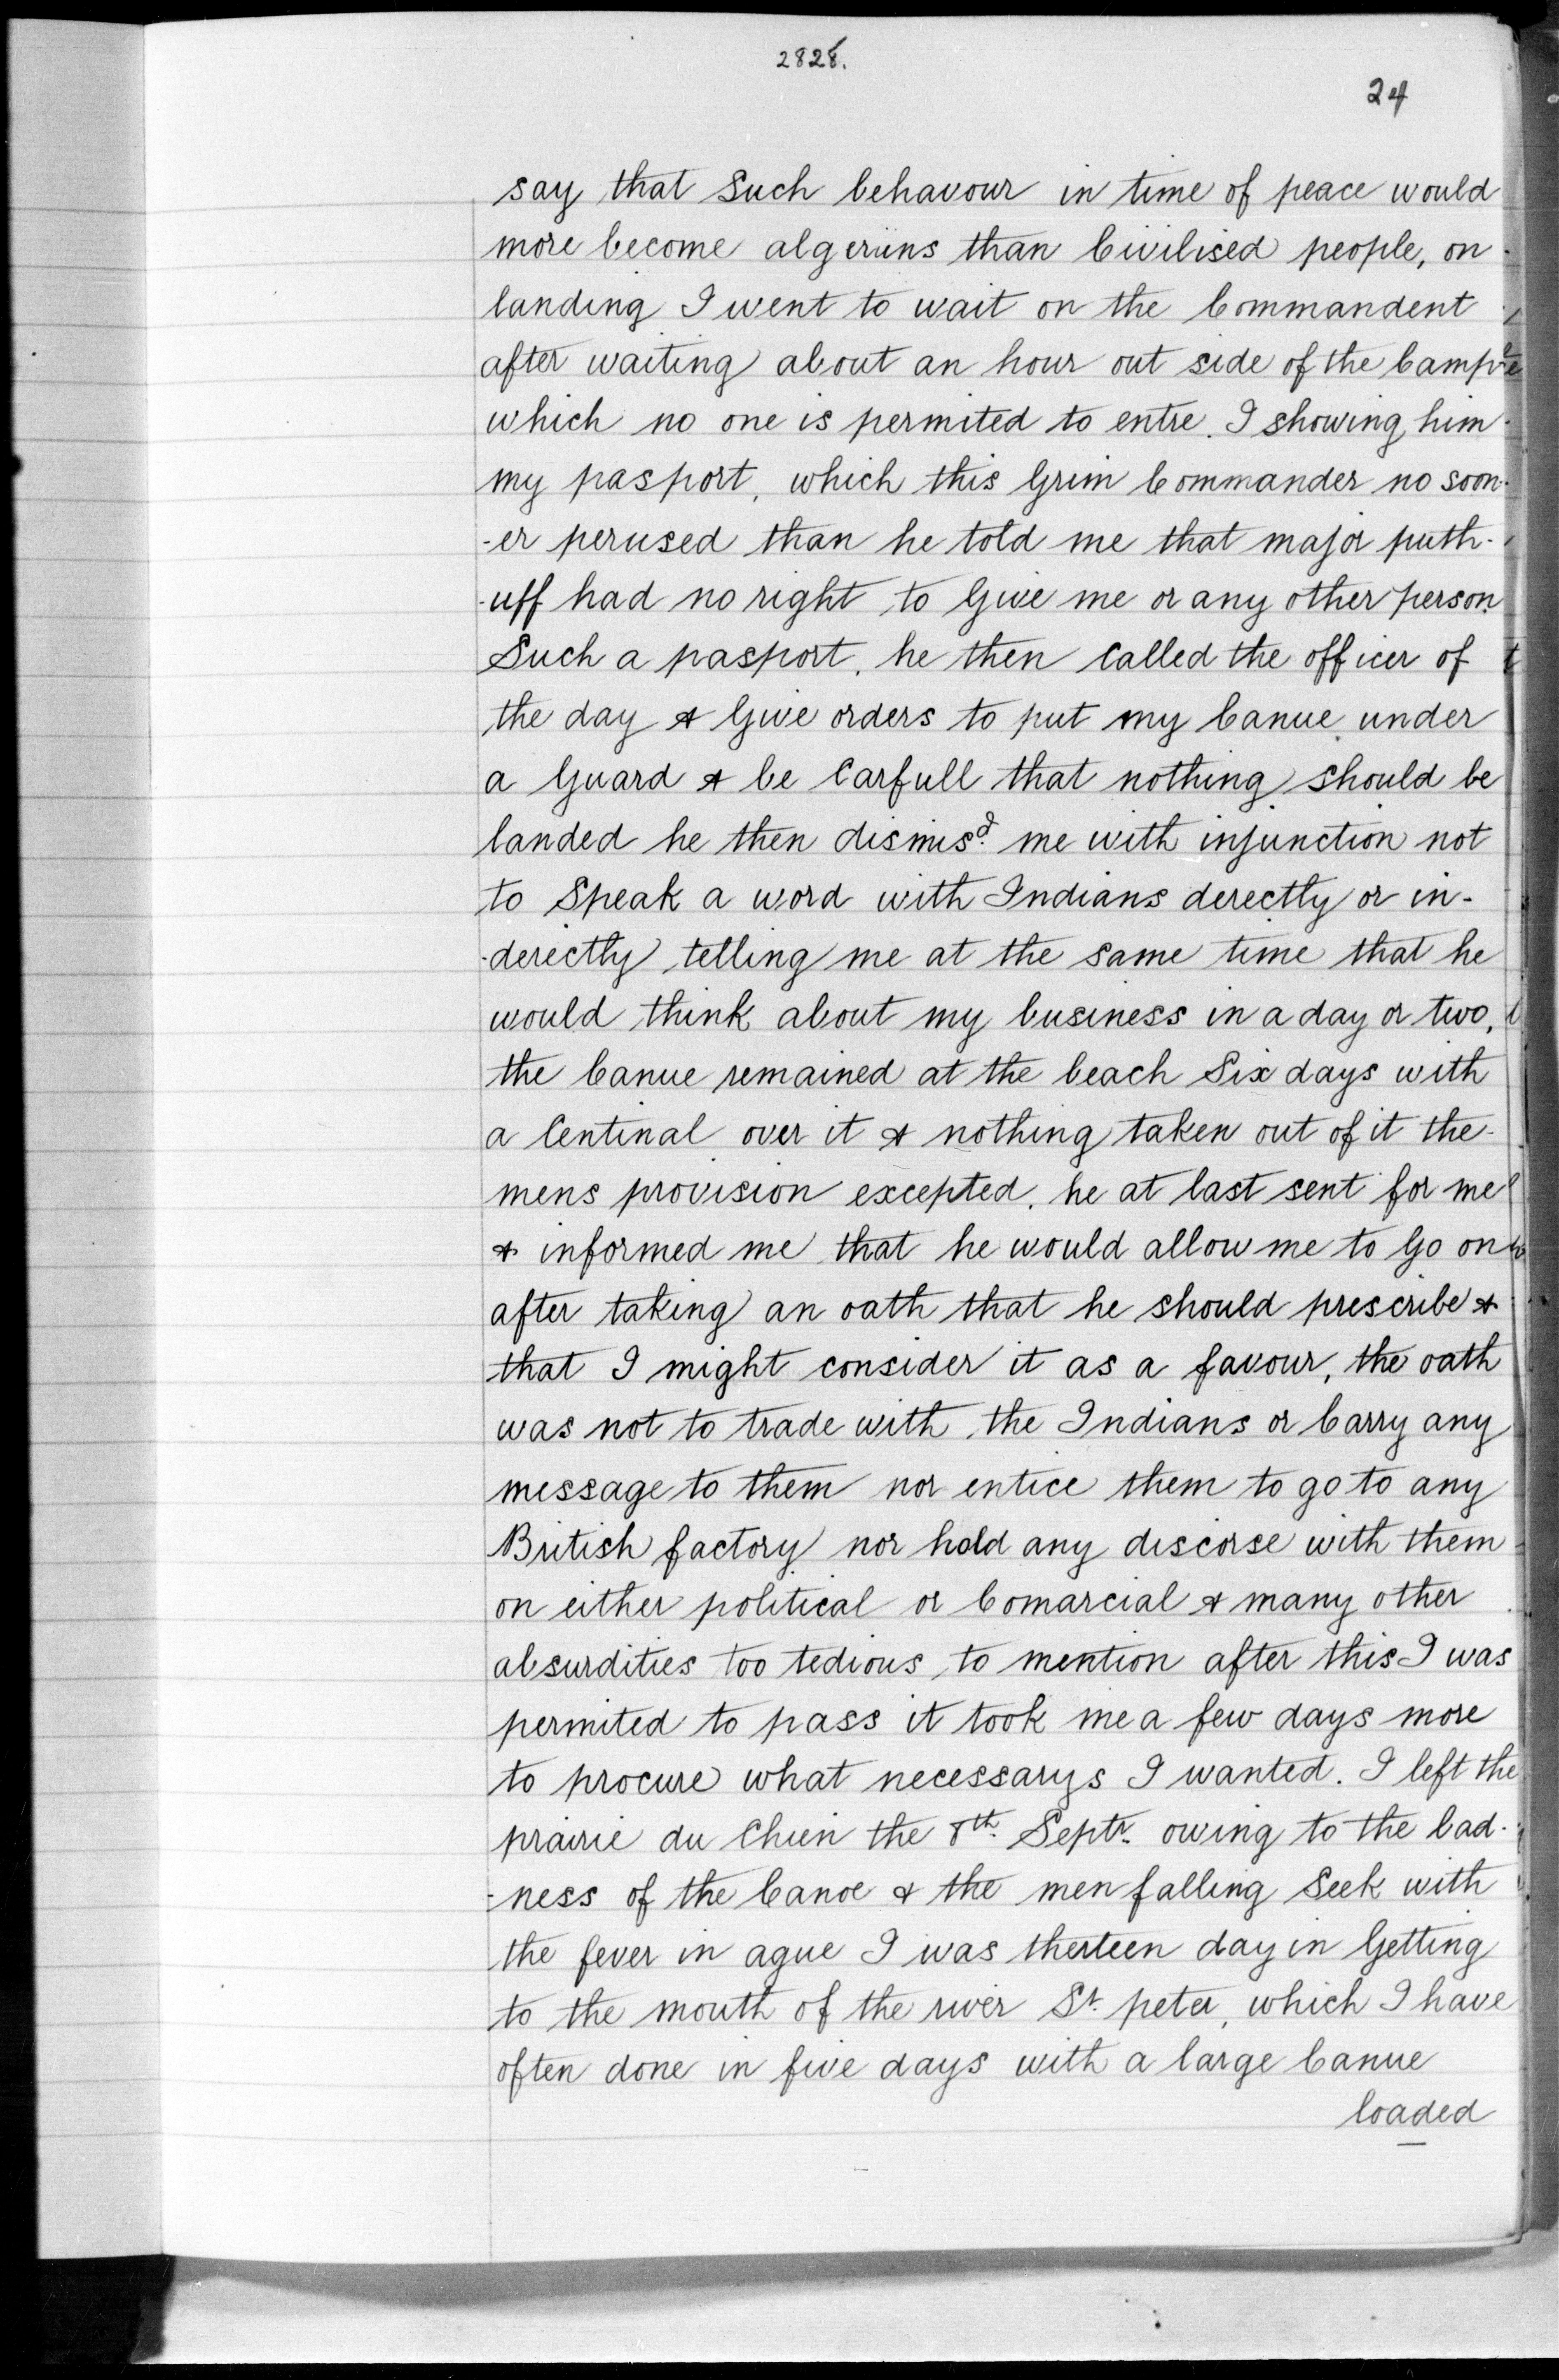 2828.
24
say that Such behavour in time of peace would
more become algeriins than Civilised people, on
landing I went to wait on the Commandent
after waiting about an hour out side of the Camp
which no one is permited to entre. I showing him
my pasport, which this Grim Commander no soon-
-er perused than he told me that major puth-
-uff had no right to Give me or any other person
Such a pasport. he then Called the officer of
the day & Give orders to put my Canue under
a Guard & be Carfull that nothing should be
landed he then dismisd. me with injunction not
to Speak a word with Indians derectly or in-
-derectly telling me at the same time that he
would think about my business in a day or two,
the Canue remained at the beach Six days with
a Centinal over it & nothing taken out of it the
mens provision excepted. he at last sent for me
& informed me that he would allow me to Go on
after taking an oath that he should prescribe &
that I might consider it as a favour, the oath
was not to trade with the Indians or Carry any
message to them nor entice them to go to any
British factory nor hold any discorse with them
on either political or Comarcial & many other
absurdities too tedious to mention after this I was
permited to pass it took me a few days more
to procure what necessarys I wanted. I left the
prairie du Chien the 8th. Septr. owing to the bad-
-ness of the Canoe & the men falling Seek with
the fever in ague I was therteen day in Getting
to the mouth of the river St. peter, which I have
often done in five days with a large Canue
loaded